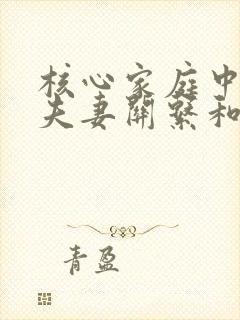 核心家庭中
夫妻關繫和
青盈